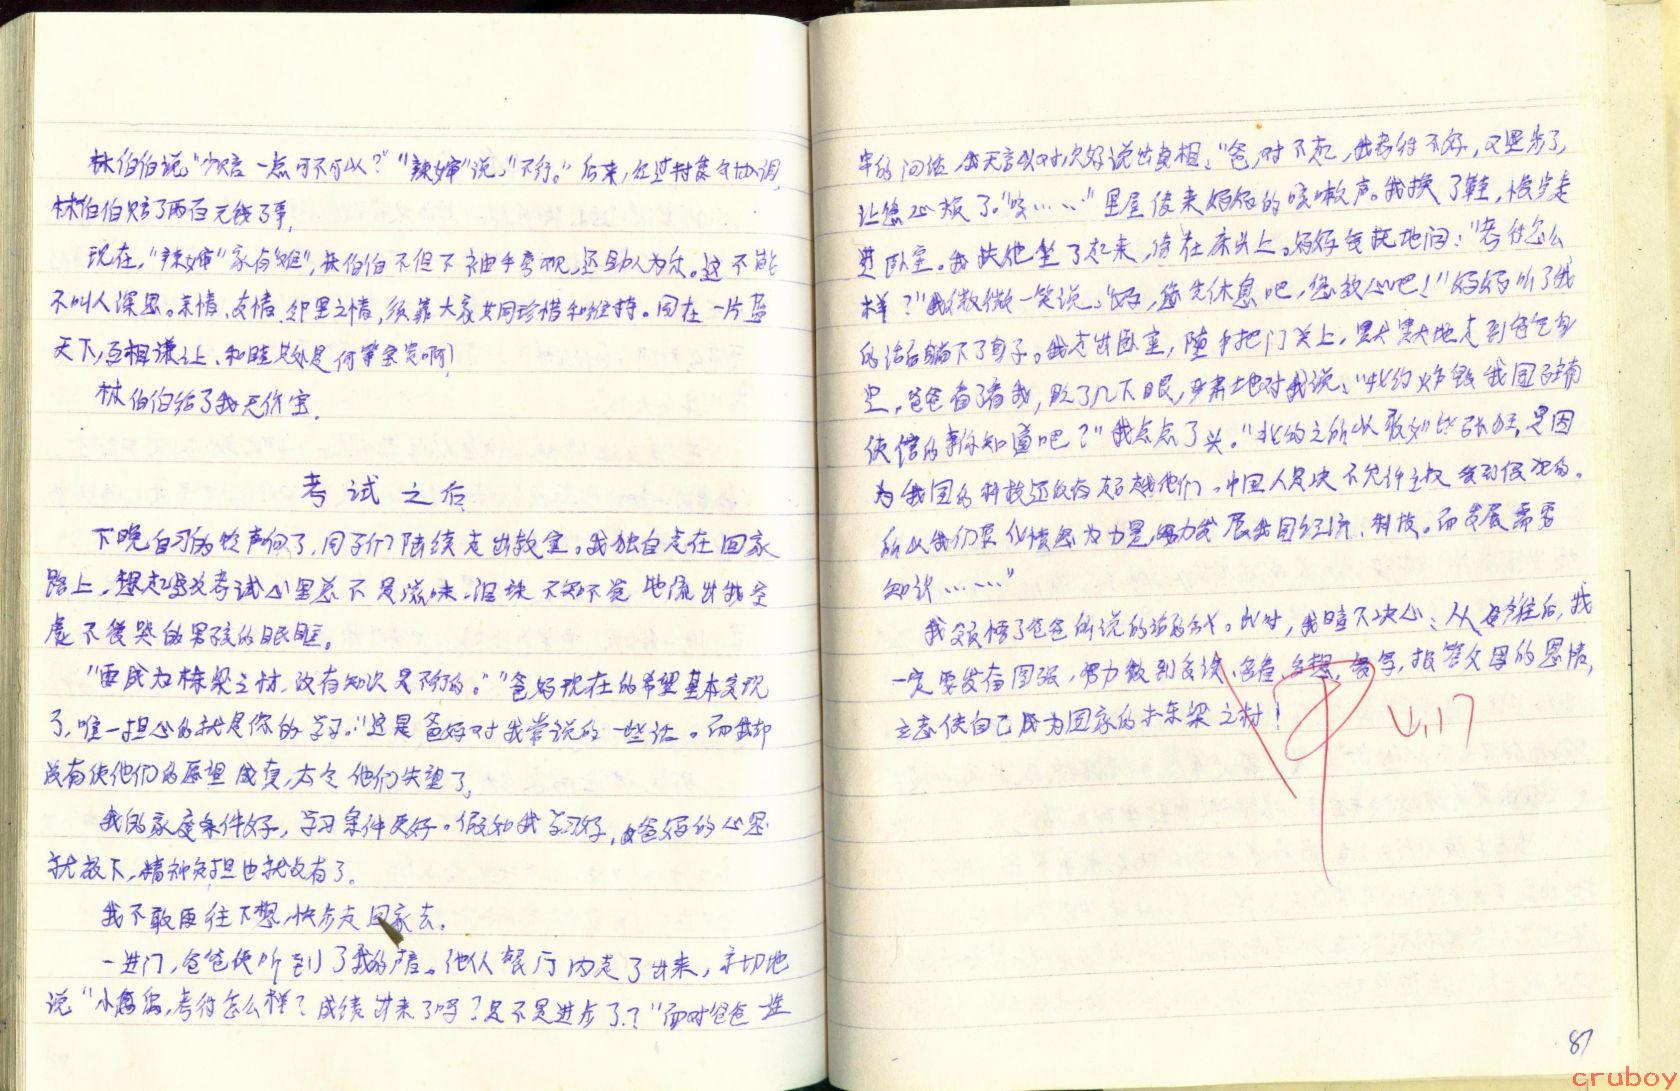 林伯伯说:"少赔一点可不可以?""辣婶"说,"不行。"后来,经过村委会协调,
林伯伯赔了两百元钱了事。
现在,"辣婶"家有难,林伯伯不但不袖手旁观,还助人为乐。这不能
不叫人深思。亲情、友情、邻里之情,须靠大家共同珍惜和维持。同在一片蓝
天下,互相谦让、和睦共处是何等宝贵啊!
林伯伯给了我无价宝。
考试之后
下晚自习的铃声响了,同学们陆续走出教室。我独自走在回家
路上,想起这次考试心里总不是滋味,泪珠不知不觉地流出我这
处不爱哭的男孩的眼眶。
"要成为栋梁之材,没有知识是不行的。""爸妈现在的希望基本实现
了,唯一担心的就是你的学习。"这是爸妈对我常说的一些话。而我却
没有使他们的愿望成真,太令他们失望了。
我的家庭条件好,学习条件更好。假如我学习好,爸妈的心思
就放下,精神负担也就没有了。
我不敢再往下想,快步走回家去。
一进门,爸爸便听到了我的声音。他从餐厅内走了出来,亲切地
说"小,考得怎么样?成绩出来了吗?是不是进步了?"面对爸爸一连
串的问话,我无言以对,只好说出真相:"爸,对不起,我考得不好,又退步了,
让您心烦了。"咳……"里屋传来妈妈的咳嗽声。我换了鞋,慢步走
进卧室。我扶她坐了起来,倚在床头上。妈妈气短地问:"考得怎么
样?"我微微一笑说:"好,您先休息吧,您放心吧!"妈妈听了我
的话后躺下了身子。我走出卧室,随手把门关上,默默地走到爸爸身
边,爸爸看了看我,眨了几下眼,严肃地对我说:"北约炸毁我国驻南
使馆的事你知道吧?"我点点了头。"北约之所以敢如此张狂,是因
为我国的科技还没有超越他们。中国人民决不允许主权受到侵犯的。
所以我们要化愤怒为力量,努力发展我国经济、科技。而发展需要
知识……"
我领悟了爸爸所说的话的含义。此时,我暗下决心:从今往后,我
一定要发奋图强,努力做到多读、多看、多想、多写,报答父母的恩情,
立志使自己成为国家的栋梁之材!
中 4.17
87
cruboy